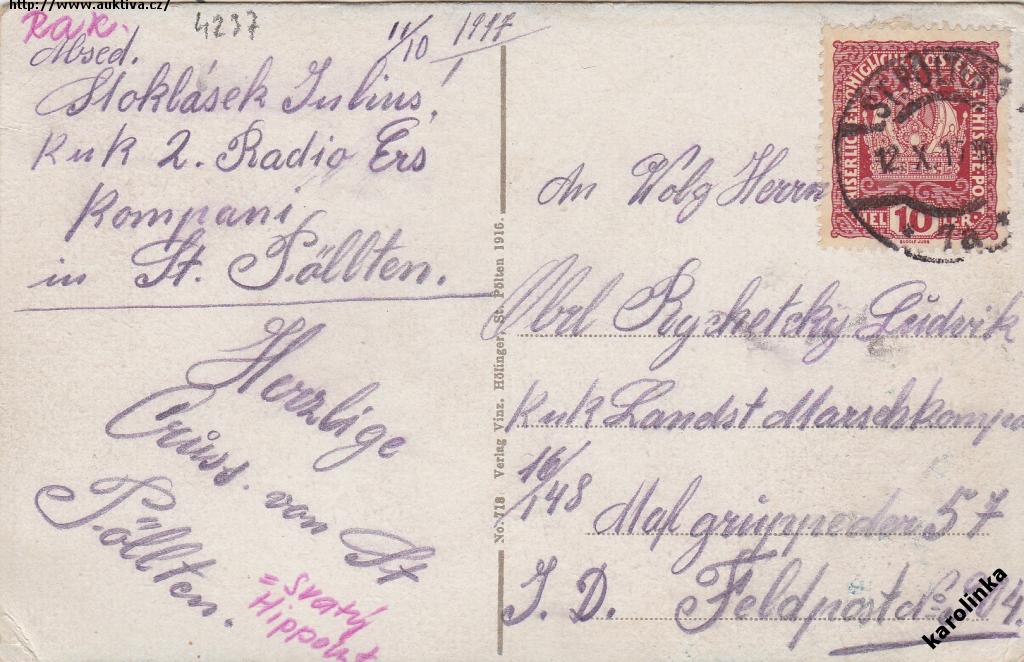 http://www.auktiva.cz/
Rak.
4237
11/10 1917
Absed.
Stoklásek Julius,
Kuk 2. Radio Ers
Kompani
in St. Pöllten.
Herzlige
Grüss. von St
Pöllten.
= Svatý
Hippolit
No. 718 Verlag Vinz. Höfinger, St. Pölten 1916.
ST. PÖLTEN
12. X. 17
7a
KAISERLICH KÖNIGLICHE ÖSTERREICHISCHE POST
HELLER 10 HELLER
RUDOLF JUNK
An Wolg Herrn
Obrl Ryshetcky Ludvik
Kuk Landst Marschkompa
16/148 Mal gruppe der 57
I. D. Feldpost No 204.
karolinka